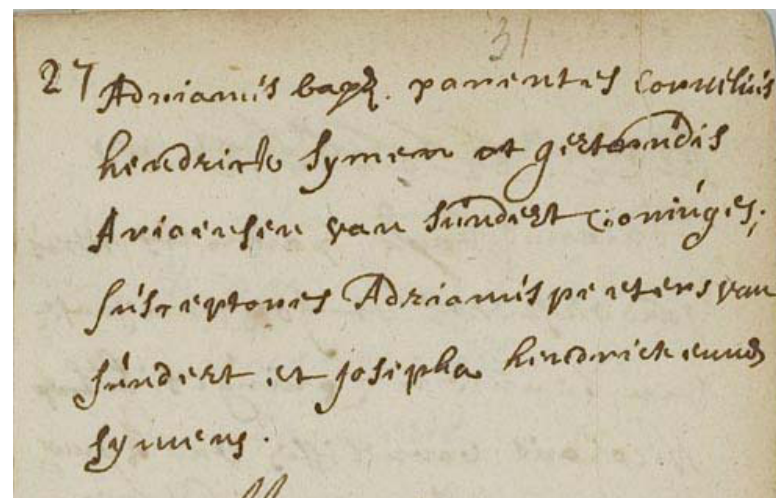 31
27 Adrianus bapt. parentes Cornelius
hendrick Symen et gertrudis
Ariaensen van Sundert Coniuges;
Susceptores Adrianus peeters van
Sundert et Josepha hendrick
Symens.